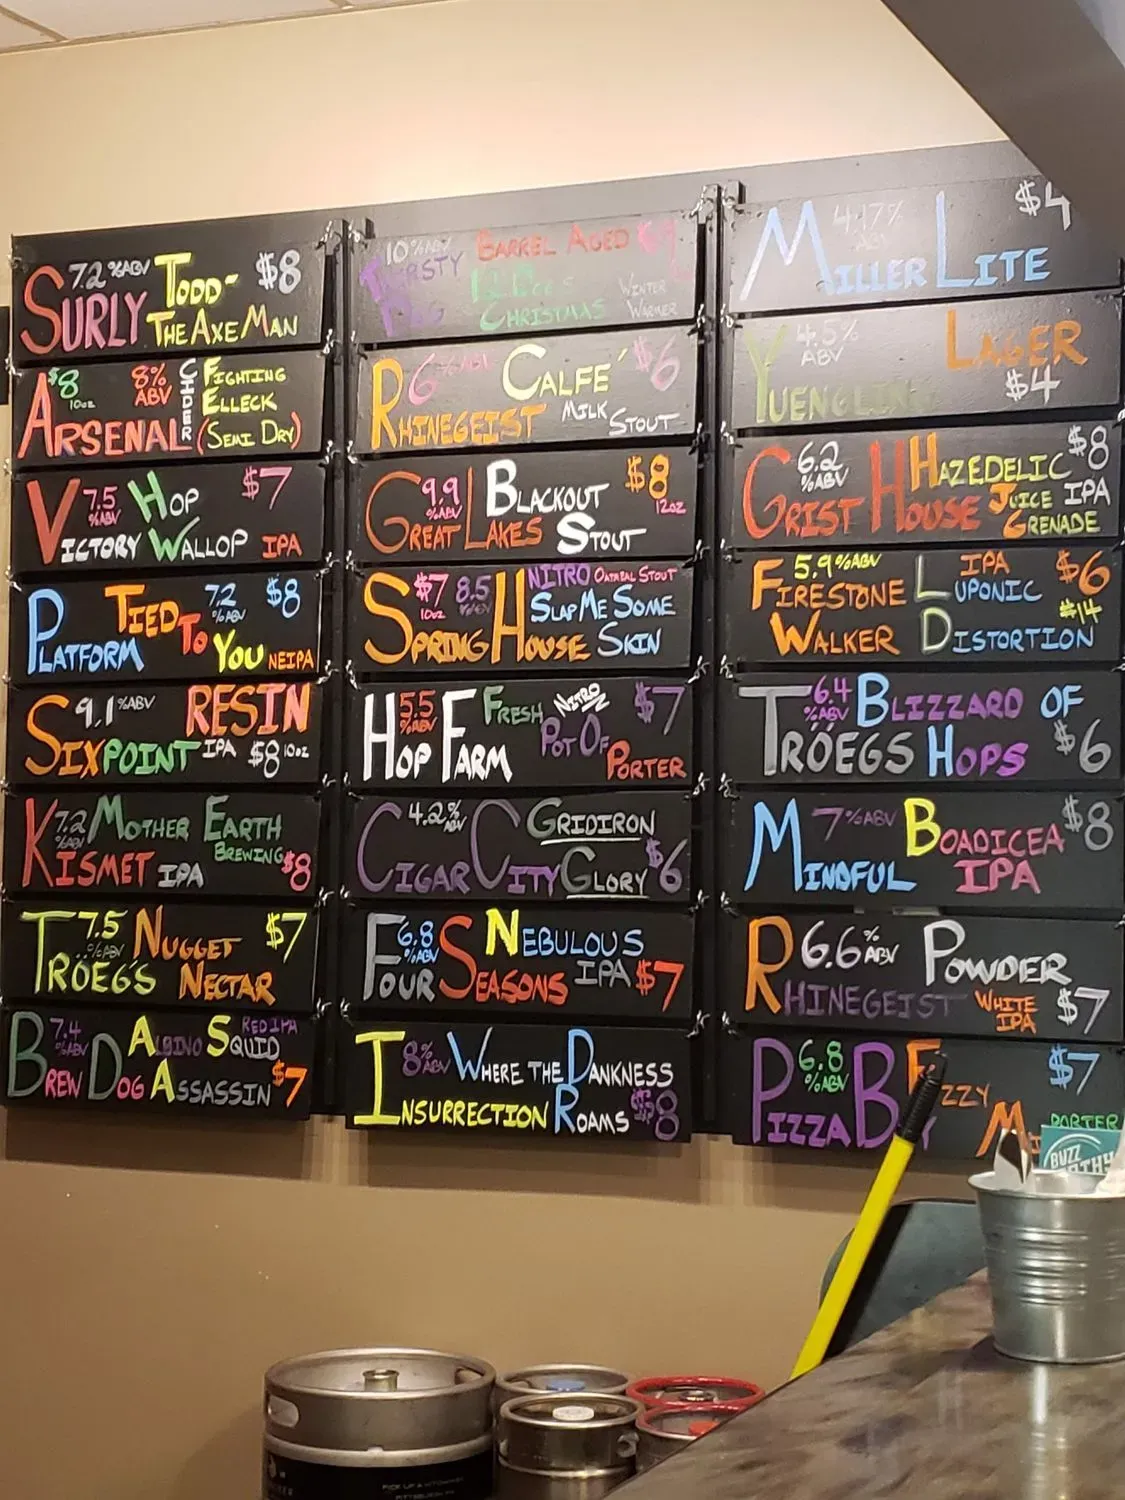 SURLY 7.2 %ABV TODD- $8
THE AXE MAN
$8 10oz 8% ABV CIDER FIGHTING
ELLECK
ARSENAL (SEMI DRY)
7.5 %ABV HOP $7
VICTORY WALLOP IPA
TIED TO 7.2 %ABV $8
PLATFORM YOU NEIPA
9.1 %ABV RESIN
SIXPOINT IPA $8 10oz
7.2 %ABV MOTHER EARTH
BREWING $8
KISMET IPA
7.5 %ABV NUGGET $7
TRÖEGS NECTAR
7.4 %ABV ALBINO SQUID RED IPA
BREW DOG ASSASSIN $7
10% ABV BARREL AGED
THIRSTY WINTER
CHRISTMAS WARMER
6 %ABV CALFÉ $6
RHINEGEIST MILK STOUT
9.9 %ABV BLACKOUT $8 12oz
GREAT LAKES STOUT
$7 10oz 8.5 %ABV NITRO OATMEAL STOUT
SLAP ME SOME
SPRING HOUSE SKIN
5.5 %ABV FRESH NITRO $7
POT OF
HOP FARM PORTER
4.2% ABV GRIDIRON
CIGAR CITY GLORY $6
6.8 %ABV NEBULOUS
FOUR SEASONS IPA $7
8% ABV WHERE THE DANKNESS
INSURRECTION ROAMS $8
4.17% ABV $4
MILLER LITE
4.5% ABV LAGER
YUENGLING $4
6.2 %ABV HAZEDELIC $8
JUICE IPA
GRIST HOUSE GRENADE
5.9 %ABV IPA $6
FIRESTONE LUPONIC
$14
WALKER DISTORTION
6.4 %ABV BLIZZARD OF
TRÖEGS HOPS $6
7 %ABV BOADICEA $8
MINDFUL IPA
6.6 %ABV POWDER
RHINEGEIST WHITE IPA $7
6.8 %ABV FIZZY $7
PIZZA PORTER
BUZZ